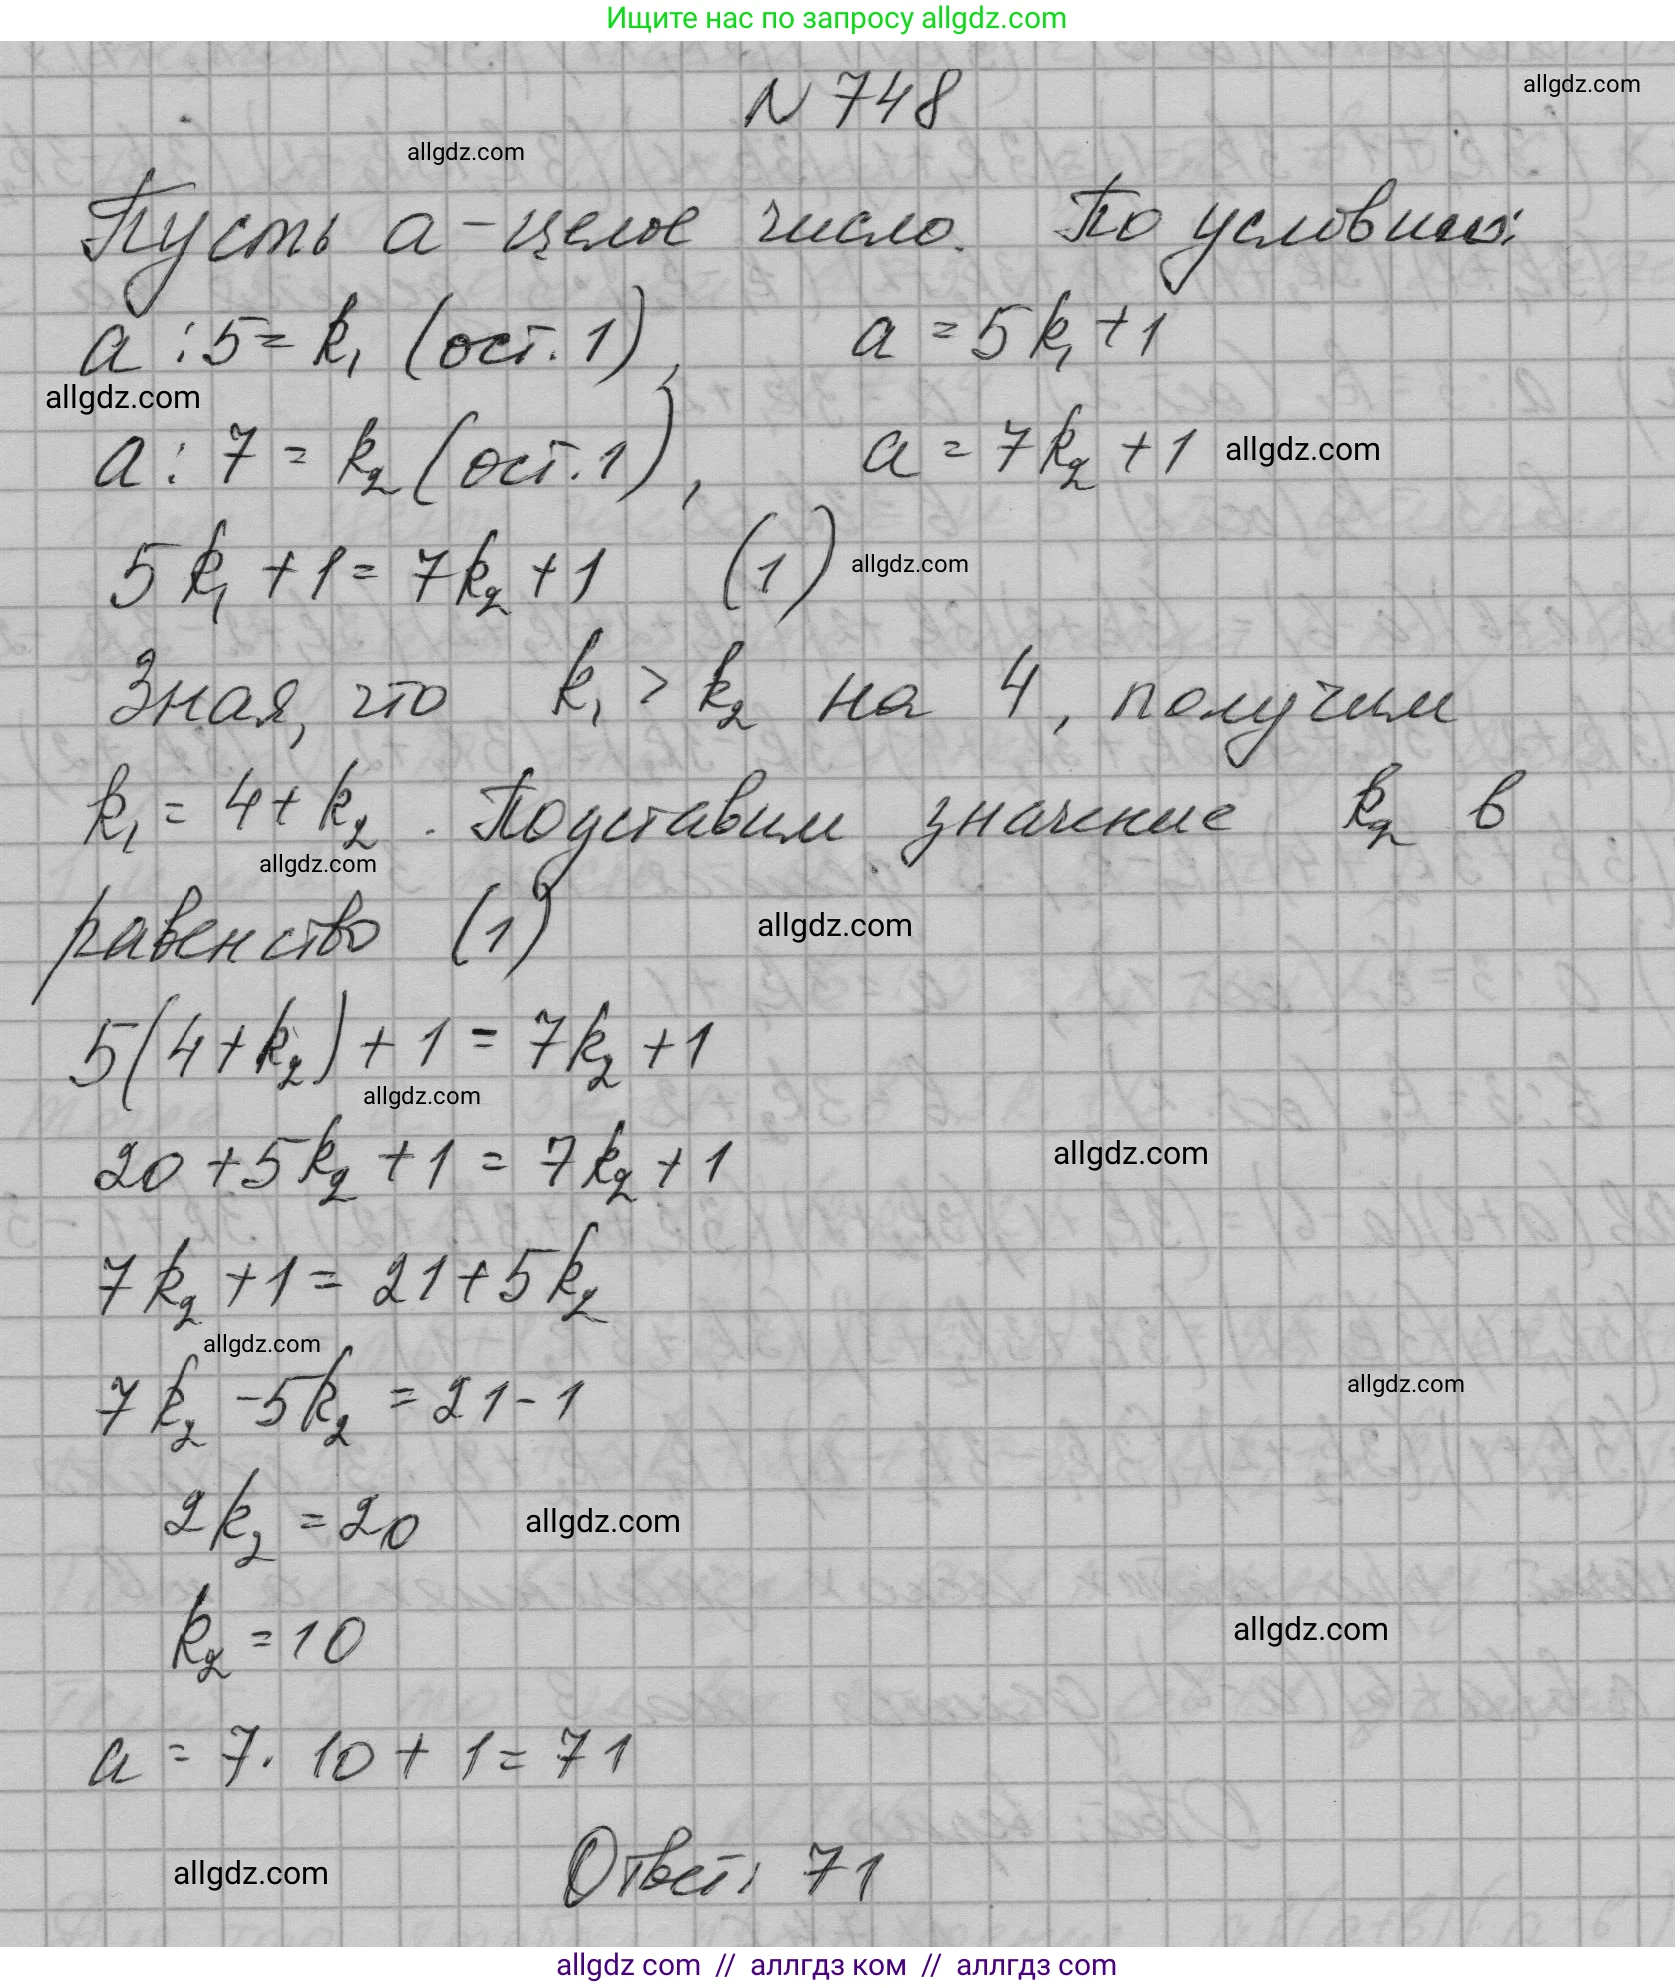 Ищите нас по запросу allgdz.com
N 748
allgdz.com
allgdz.com
Пусть a - целое число. По условию:
a : 5 = k₁ (ост. 1), a = 5k₁ + 1
allgdz.com
a : 7 = k₂ (ост. 1), a = 7k₂ + 1 allgdz.com
5k₁ + 1 = 7k₂ + 1 (1) allgdz.com
Зная, что k₁ > k₂ на 4, получим
k₁ = 4 + k₂. Подставим значение k₂ в
allgdz.com
равенство (1) allgdz.com
5(4 + k₂) + 1 = 7k₂ + 1
allgdz.com
20 + 5k₂ + 1 = 7k₂ + 1 allgdz.com
7k₂ + 1 = 21 + 5k₂
allgdz.com
7k₂ - 5k₂ = 21 - 1 allgdz.com
2k₂ = 20 allgdz.com
k₂ = 10 allgdz.com
a = 7 · 10 + 1 = 71
allgdz.com Ответ: 71
allgdz com // аллгдз ком // аллгдз com